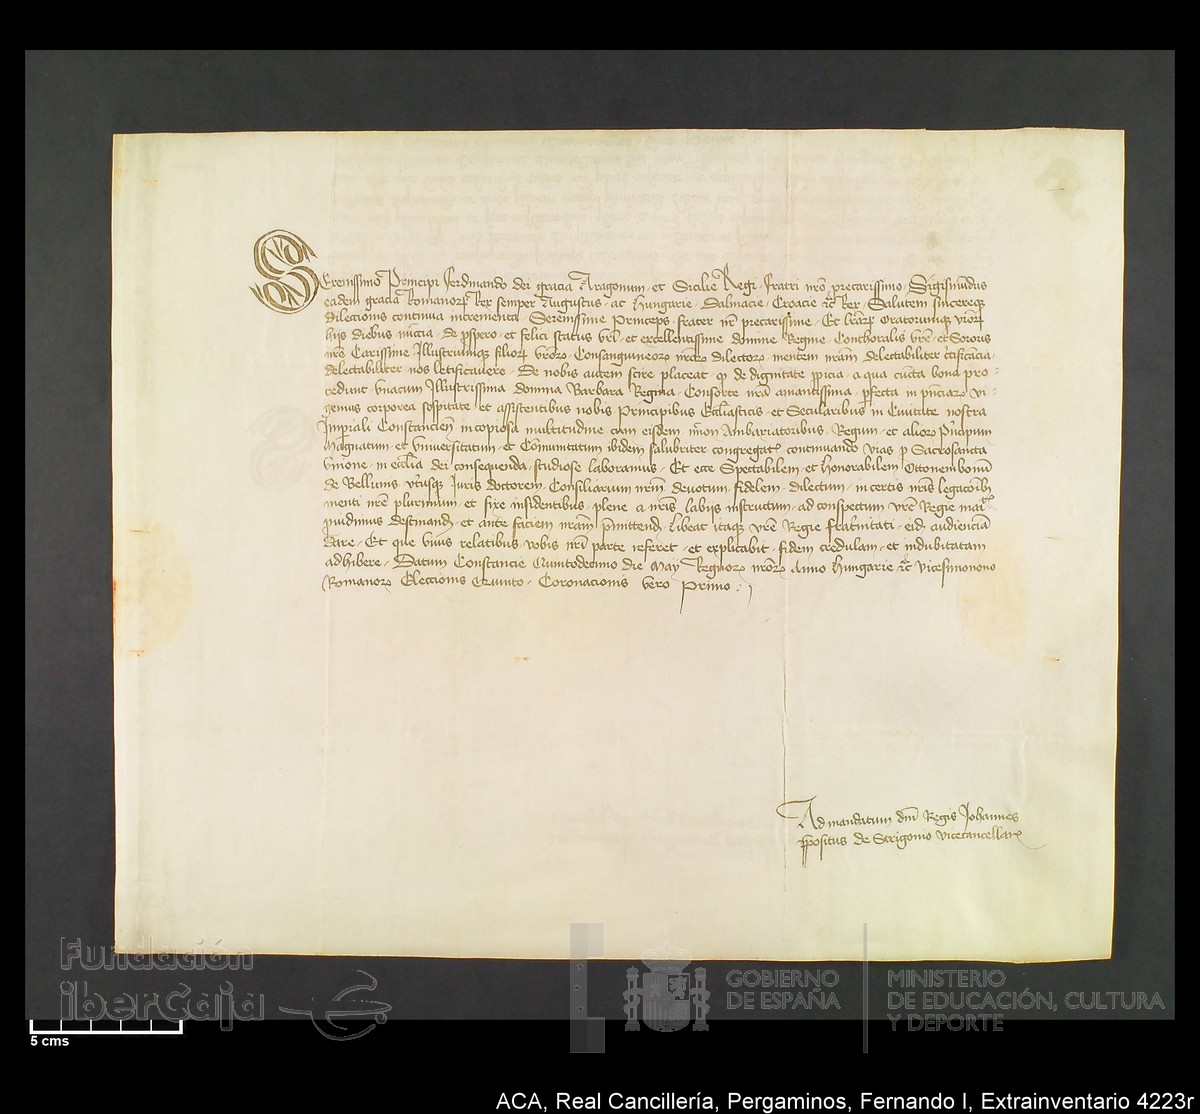 Serenissimo Principi Ferdinando dei gracia Aragonum et Sicilie Regi fratri nr̃o precarissimo Sigismūdus
eadem gracia Romanorꝝ Rex semper Augustus ac Hungarie Dalmacie Croacie etc̃ Rex Salutem sincereqꝫ
dilectionis continua incrementa Serenissime Princeps frater nr̃ precarissime Et lr̃arꝝ Oratorumqꝫ vr̃orꝝ
hijs diebus nũccia de ꝓspero et felici status vr̃i et excellentissime domine Regine Conthoralis vr̃e et Sororis
nr̃e Carissime Illustriumqꝫ filiorꝝ vr̃orꝝ Consanguineorꝝ nr̃orꝝ dilectorꝝ mentem nr̃am delectabiliter
delectabiliter nos letificauere De nobis autem scire placeat qͥ de dignitate ꝓpicia a qua cũcta bona pro-
cedunt vnacum Illustrissima domina Barbara Regina Consorte nr̃a amantissima ꝑfecta in pñciarꝝ vi-
gemus corporea sospitate et assistentibus nobis Principibus Eccl̃iasticis et Secularibus in Ciuitate nostra
Imp̃iali Constancieñ in copiosa multitudine cum eisdem nr̃mon Ambaxiatoribus Regum et aliorꝝ Pñcipum
Magnatum et Vniuersitatum et Com̃unitatum ibidem salubriter congregat̃ continuando vias ꝓ Sacrosancta
Vnione in eccl̃ia dei consequenda studiose laboramus Et ecce Spectabilem et honorabilem Ottonembonũ
de Bellonis vtr̃usqꝫ Juris doctorem Consiliarium nr̃m deuotum fidelem dilectum in certis nr̃is legacõibꝫ
menti nr̃e plurimum et fixe insidentibus plene a nr̃is labijs instructum ad conspectum vr̃e Regie mat̃
ꝓuidimus destinand̃ et ante faciem nr̃am p̃mittend̃ libeat itaqꝫ vr̃e Regie frat̃nitati eid̃ audienciã
dare Et que viuis relatibus vobis nr̃i parte referet et explicabit fidem credulam et indubitatam
adhibere Datum Constancie Quintodecimo die May Regnorꝝ nr̃orꝝ Anno Hungarie etc̃ Vicesimonono
Romanorꝝ Eleccionis Quinto Coronacionis vero Primo
Ad mandatum dñi Regis Johannes
p̃positus de Strigonio vicecancellarꝝ
Fundación
iberCaja
GOBIERNO
DE ESPAÑA
MINISTERIO
DE EDUCACIÓN, CULTURA
Y DEPORTE
5 cms
ACA, Real Cancillería, Pergaminos, Fernando I, Extrainventario 4223r